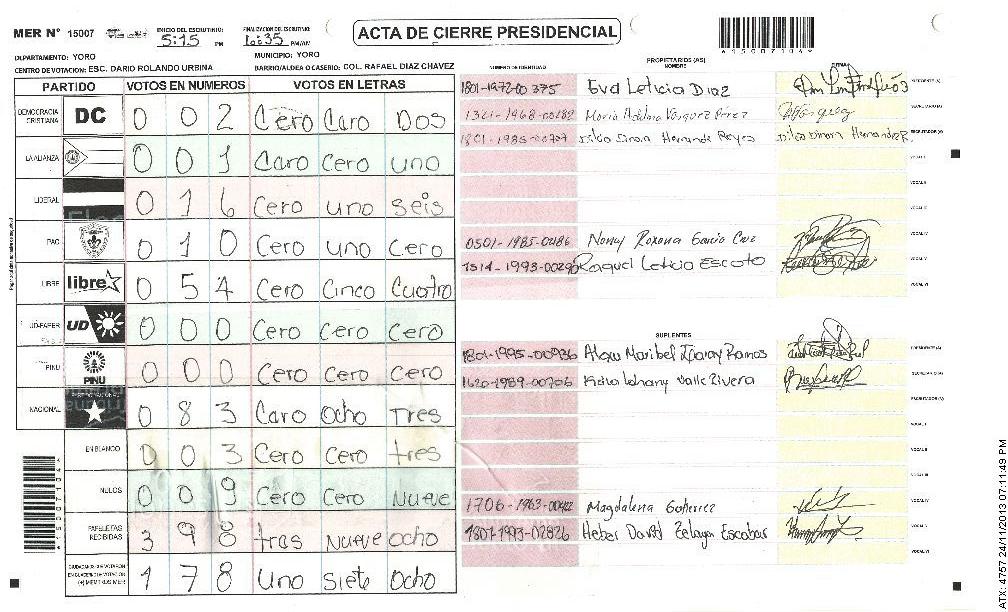 MER N° 15007
INICIO DEL ESCRUTINIO: 5:15 PM
FINALIZACION DEL ESCRUTINIO: 6:35 PM/AM
ACTA DE CIERRE PRESIDENCIAL
DEPARTAMENTO: YORO
MUNICIPIO: YORO
CENTRO DE VOTACION: ESC. DARIO ROLANDO URBINA
BARRIO/ALDEA O CASERIO: COL. RAFAEL DIAZ CHAVEZ
PARTIDO VOTOS EN NUMEROS VOTOS EN LETRAS
DEMOCRACIA CRISTIANA DC 0 0 2 Cero Caro Dos
LA ALIANZA 0 0 1 Caro cero uno
LIBERAL 0 1 6 Cero uno seis
PAC 0 1 0 Cero uno Cero
LIBRE libre 0 5 4 Cero Cinco Cuatro
UD-FAPER UD 0 0 0 Cero Cero Cero
PINU PINU 0 0 0 Cero Cero Cero
NACIONAL 0 8 3 Caro Ocho Tres
EN BLANCO 0 0 3 Cero Cero tres
NULOS 0 0 9 Cero Cero Nueve
PAPELETAS RECIBIDAS 3 9 8 tras Nueve Ocho
CIUDADANOS QUE VOTARON EN CUADERNO DE VOTACION (+) MIEMTROS MER 1 7 8 Uno siete Ocho
NUMERO DE IDENTIDAD
PROPIETARIOS (AS)
NOMBRE
FIRMA
1801-1972-00375 Eva Leticia Diaz
PRESIDENTE (A)
Maria Vasquez Perez
SECRETARIO (A)
Hernande Reyes
ESCRUTADOR (A)
VOCAL I
VOCAL II
VOCAL III
0501-1985-0486 Nancy Roxana Garcia Cruz
VOCAL IV
Raquel Leticia Escoto
VOCAL V
VOCAL VI
SUPLENTES
1801-1995-00936 Maribel Ramos
PRESIDENTE (A)
1620-1989-00706 Valle Rivera
SECRETARIO (A)
ESCRUTADOR (A)
VOCAL I
VOCAL II
VOCAL III
Magdalena Gutierrez
VOCAL IV
1807-1993-02826 Heber David Zelaya Escobar
VOCAL V
VOCAL VI
ATX: 4757 24/11/2013 07:11:49 PM